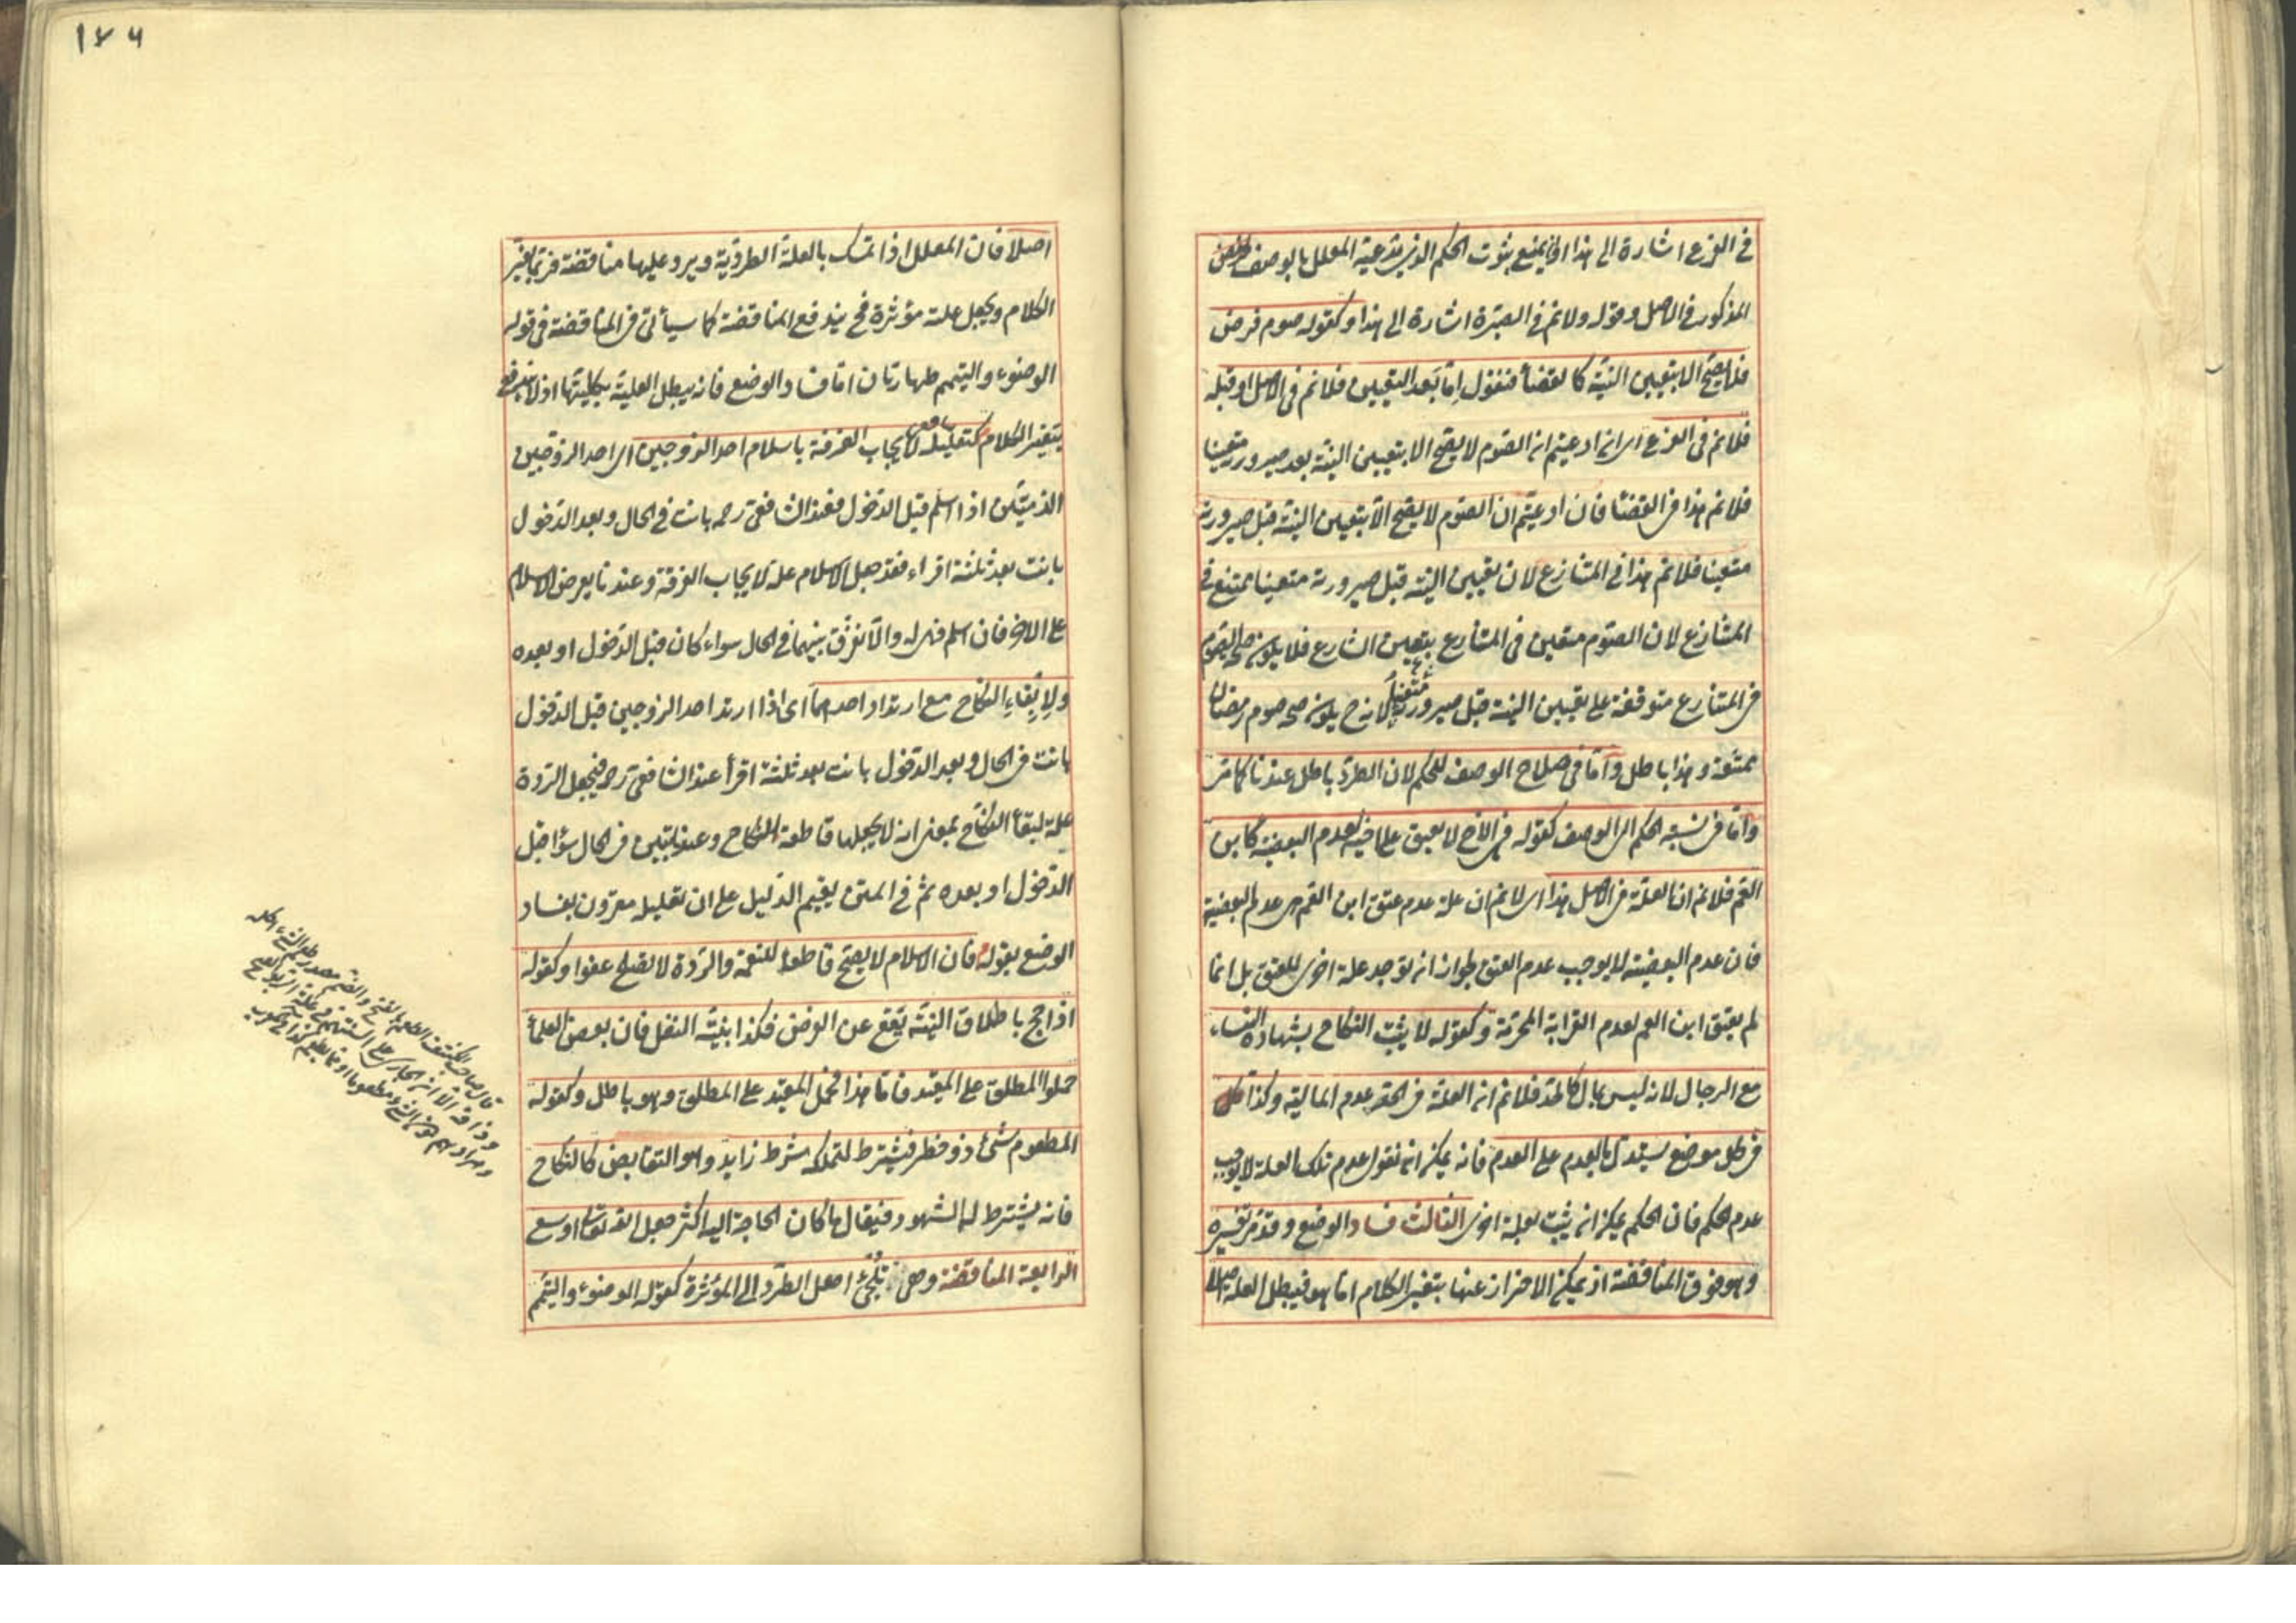 في الفرع اشارة الى هذا او يمنع ثبوت الحكم الذي يدعيه المعلل بالوصف
المذكور في الاصل وقوله ولا نم في الغيرة اشارة الى هذا وكقوله صوم فرض
فلا يصح الا بتعيين النية كالقضاء فنقول اما بعد التعيين فلا نم في الاصل او قبله
فلا نم في الفرع اى ان ادعيتم ان الصوم لا يصح الا بتعيين النية بعد صيرورته متعينا
فلا نم هذا في القضاء فان ادعيتم ان الصوم لا يصح الا بتعيين النية قبل صيرورته
متعينا فلا نم هذا في المتنازع لان تعيين النية قبل صيرورته متعينا ممتنع في
المتنازع لان الصوم متعين في المتنازع بتعيين الشارع فلا يكون صحة الصوم
في المتنازع متوقفة على تعيين النية قبل صيرورته متعينا لانه ح يكون صحة صوم رمضان
ممتنعة وهذا باطل واما في صلاح الوصف للحكم لان الطرد باطل عندنا كما مر
واما في نسبة الحكم الى الوصف كقوله في الاخ لا يعتق على اخيه لعدم البعضية كابن
العم فلا نم ان العلة في الاصل هذا اى لا نم ان علة عدم عتق ابن العم هى عدم البعضية
فان عدم البعضية لا يوجب عدم العتق لجواز ان توجد علة اخرى للعتق بل انما
لم يعتق ابن العم لعدم القرابة المحرمة وكقوله لا يثبت النكاح بشهادة النساء
مع الرجال لانه ليس بمال كالحد فلا نم ان العلة في الحد عدم المالية وكذا كل
في كل موضع يستدل بالعدم على العدم فانه يمكن ان نقول عدم تلك العلة لا يوجب
عدم الحكم فان الحكم يمكن ان يثبت بعلة اخرى الثالث فساد الوضع وقد مر تفسيره
وهو فوق المناقضة اذ يمكن الاحتراز عنها بتغير الكلام اما هو فيبطل العلة
١٧٦
اصلا فان المعلل اذا تمسك بالعلة الطردية ويرد عليها مناقضة فربما يغير
الكلام ويجعل علة مؤثرة فح يندفع المناقضة كما سيأتى في المناقضة في قوله
الوضوء والتيمم طهارتان اما فساد الوضع فانه يبطل العلية بكليتها اذ لا يندفع
بتغير الكلام كتعليله لايجاب الفرقة باسلام احد الزوجين اى احد الزوجين
الذميين اذا اسلم قبل الدخول فعند الشافعى رحمه بانت في الحال وبعد الدخول
بانت بعد ثلثة اقراء فقد جعل الاسلام علة لايجاب الفرقة وعندنا يعرض الاسلام
على الاخر فان اسلم فهى له والا تفرق بينهما في الحال سواء كان قبل الدخول او بعده
ولابقاء النكاح مع ارتداد احدهما اى اذا ارتد احد الزوجين قبل الدخول
بانت في الحال وبعد الدخول بانت بعد ثلثة اقرأ عند الشافعى رحمه فيجعل الردة
علة لبقاء النكاح بمعنى انه لا يجعلها قاطعة للنكاح وعندنا تبين في الحال سواء قبل
الدخول او بعده ثم في المتن يقيم الدليل على ان تعليله مقرون بفساد
الوضع بقوله فان الاسلام لا يصح قاطعا للنعمة والردة لا تصلح عفوا وكقوله
اذا حج باطلاق النية يقع عن الفرض فكذا بنية النفل فان بعض العلماء
حملوا المطلق على المقيد فاما هذا فحمل المقيد على المطلق وهو باطل وكقوله
المطعوم شئ ذو خطر فيشترط لتملكه شرط زايد وهو التقابض كالنكاح
فانه يشترط له الشهود فيقال ما كان الحاجة اليه اكثر جعل الله تعالى اوسع
الرابعة المناقضة وهى تلجئ اهل الطرد الى المؤثرة كقوله الوضوء والتيمم
قال صاحب الكشف الطعم بالفتح والضم مصدر طعم الشئ اكله
وذاقه الا ان الجارى على السنتهم في علة الربوا الفتح